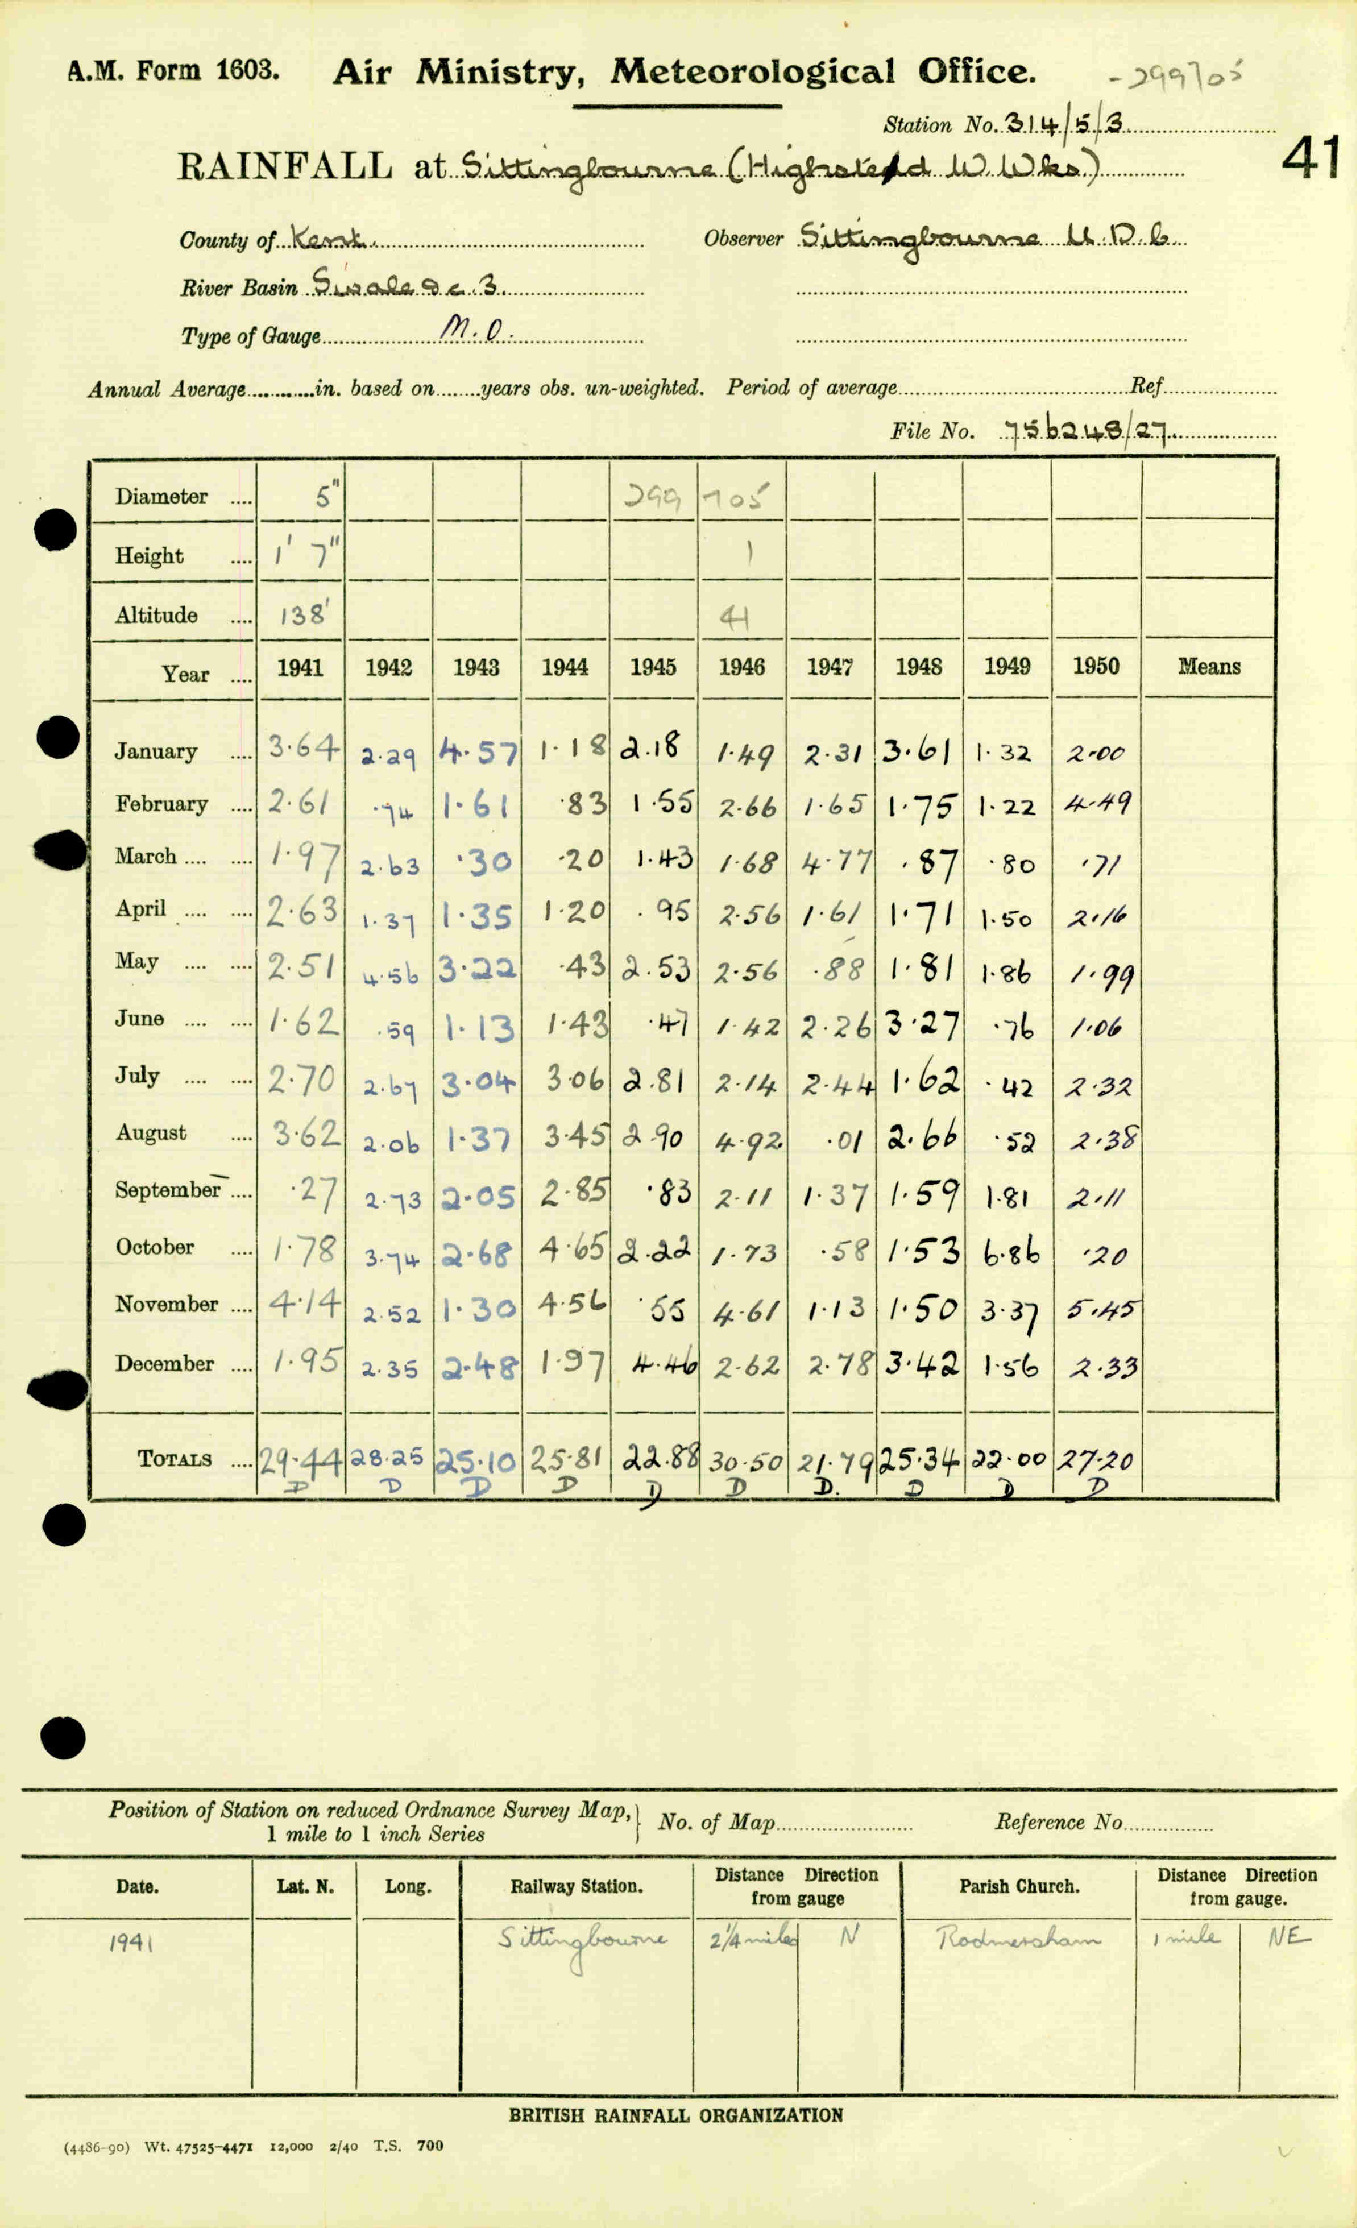 A.M. Form 1603. Air Ministry, Meteorological Office. -299705
Station No. 314/5/3
RAINFALL at Sittingbourne (Highsted W Wks) 41
County of Kent. Observer Sittingbourne U.D.C.
River Basin Swale &c. 3.
Type of Gauge M.O.
Annual Average in. based on years obs. un-weighted. Period of average Ref
File No. 756248/27
Diameter .... 5" 299 705
Height .... 1' 7" 1
Altitude .... 138' 41
Year .... 1941 1942 1943 1944 1945 1946 1947 1948 1949 1950 Means
January .... 3.64 2.29 4.57 1.18 2.18 1.49 2.31 3.61 1.32 2.00
February .... 2.61 .74 1.61 .83 1.55 2.66 1.65 1.75 1.22 4.49
March .... .... 1.97 2.63 .30 .20 1.43 1.68 4.77 .87 .80 .71
April .... .... 2.63 1.37 1.35 1.20 .95 2.56 1.61 1.71 1.50 2.16
May .... .... 2.51 4.56 3.22 .43 2.53 2.56 .88 1.81 1.86 1.99
June .... .... 1.62 .59 1.13 1.43 .47 1.42 2.26 3.27 .76 1.06
July .... .... 2.70 2.67 3.04 3.06 2.81 2.14 2.44 1.62 .42 2.32
August .... 3.62 2.06 1.37 3.45 2.90 4.92 .01 2.66 .52 2.38
September .... .27 2.73 2.05 2.85 .83 2.11 1.37 1.59 1.81 2.11
October .... 1.78 3.74 2.68 4.65 2.22 1.73 .58 1.53 6.86 .20
November .... 4.14 2.52 1.30 4.56 .55 4.61 1.13 1.50 3.37 5.45
December .... 1.95 2.35 2.48 1.97 4.46 2.62 2.78 3.42 1.56 2.33
TOTALS .... 29.44 28.25 25.10 25.81 22.88 30.50 21.79 25.34 22.00 27.20
D D D D D D D. D D D
Position of Station on reduced Ordnance Survey Map, } No. of Map Reference No
1 mile to 1 inch Series
Date. Lat. N. Long. Railway Station. Distance Direction from gauge Parish Church. Distance Direction from gauge.
1941 Sittingbourne 2¼ miles N Rodmersham 1 mile NE
BRITISH RAINFALL ORGANIZATION
(4486-90) Wt. 47525-4471 12,000 2/40 T.S. 700